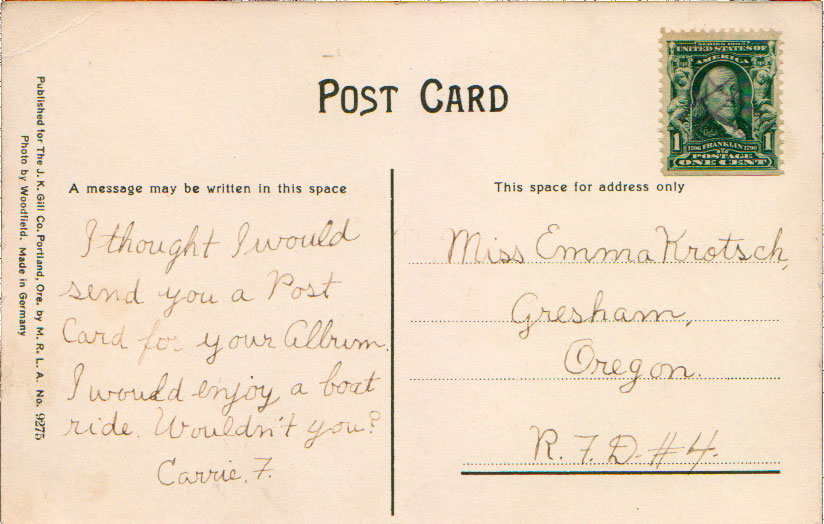 POST CARD
SERIES 1902
UNITED STATES OF
AMERICA
1 1706 FRANKLIN 1790 1
POSTAGE
ONE CENT
A message may be written in this space
This space for address only
I thought I would
send you a Post
Card for your Album.
I would enjoy a boat
ride. Wouldn't you?
Carrie. F.
Miss Emma Krotsch,
Gresham,
Oregon.
R. F. D. #4.
Published for The J. K. Gill Co. Portland, Ore. by M. R. L. A. No. 9275
Photo by Woodfield. Made in Germany